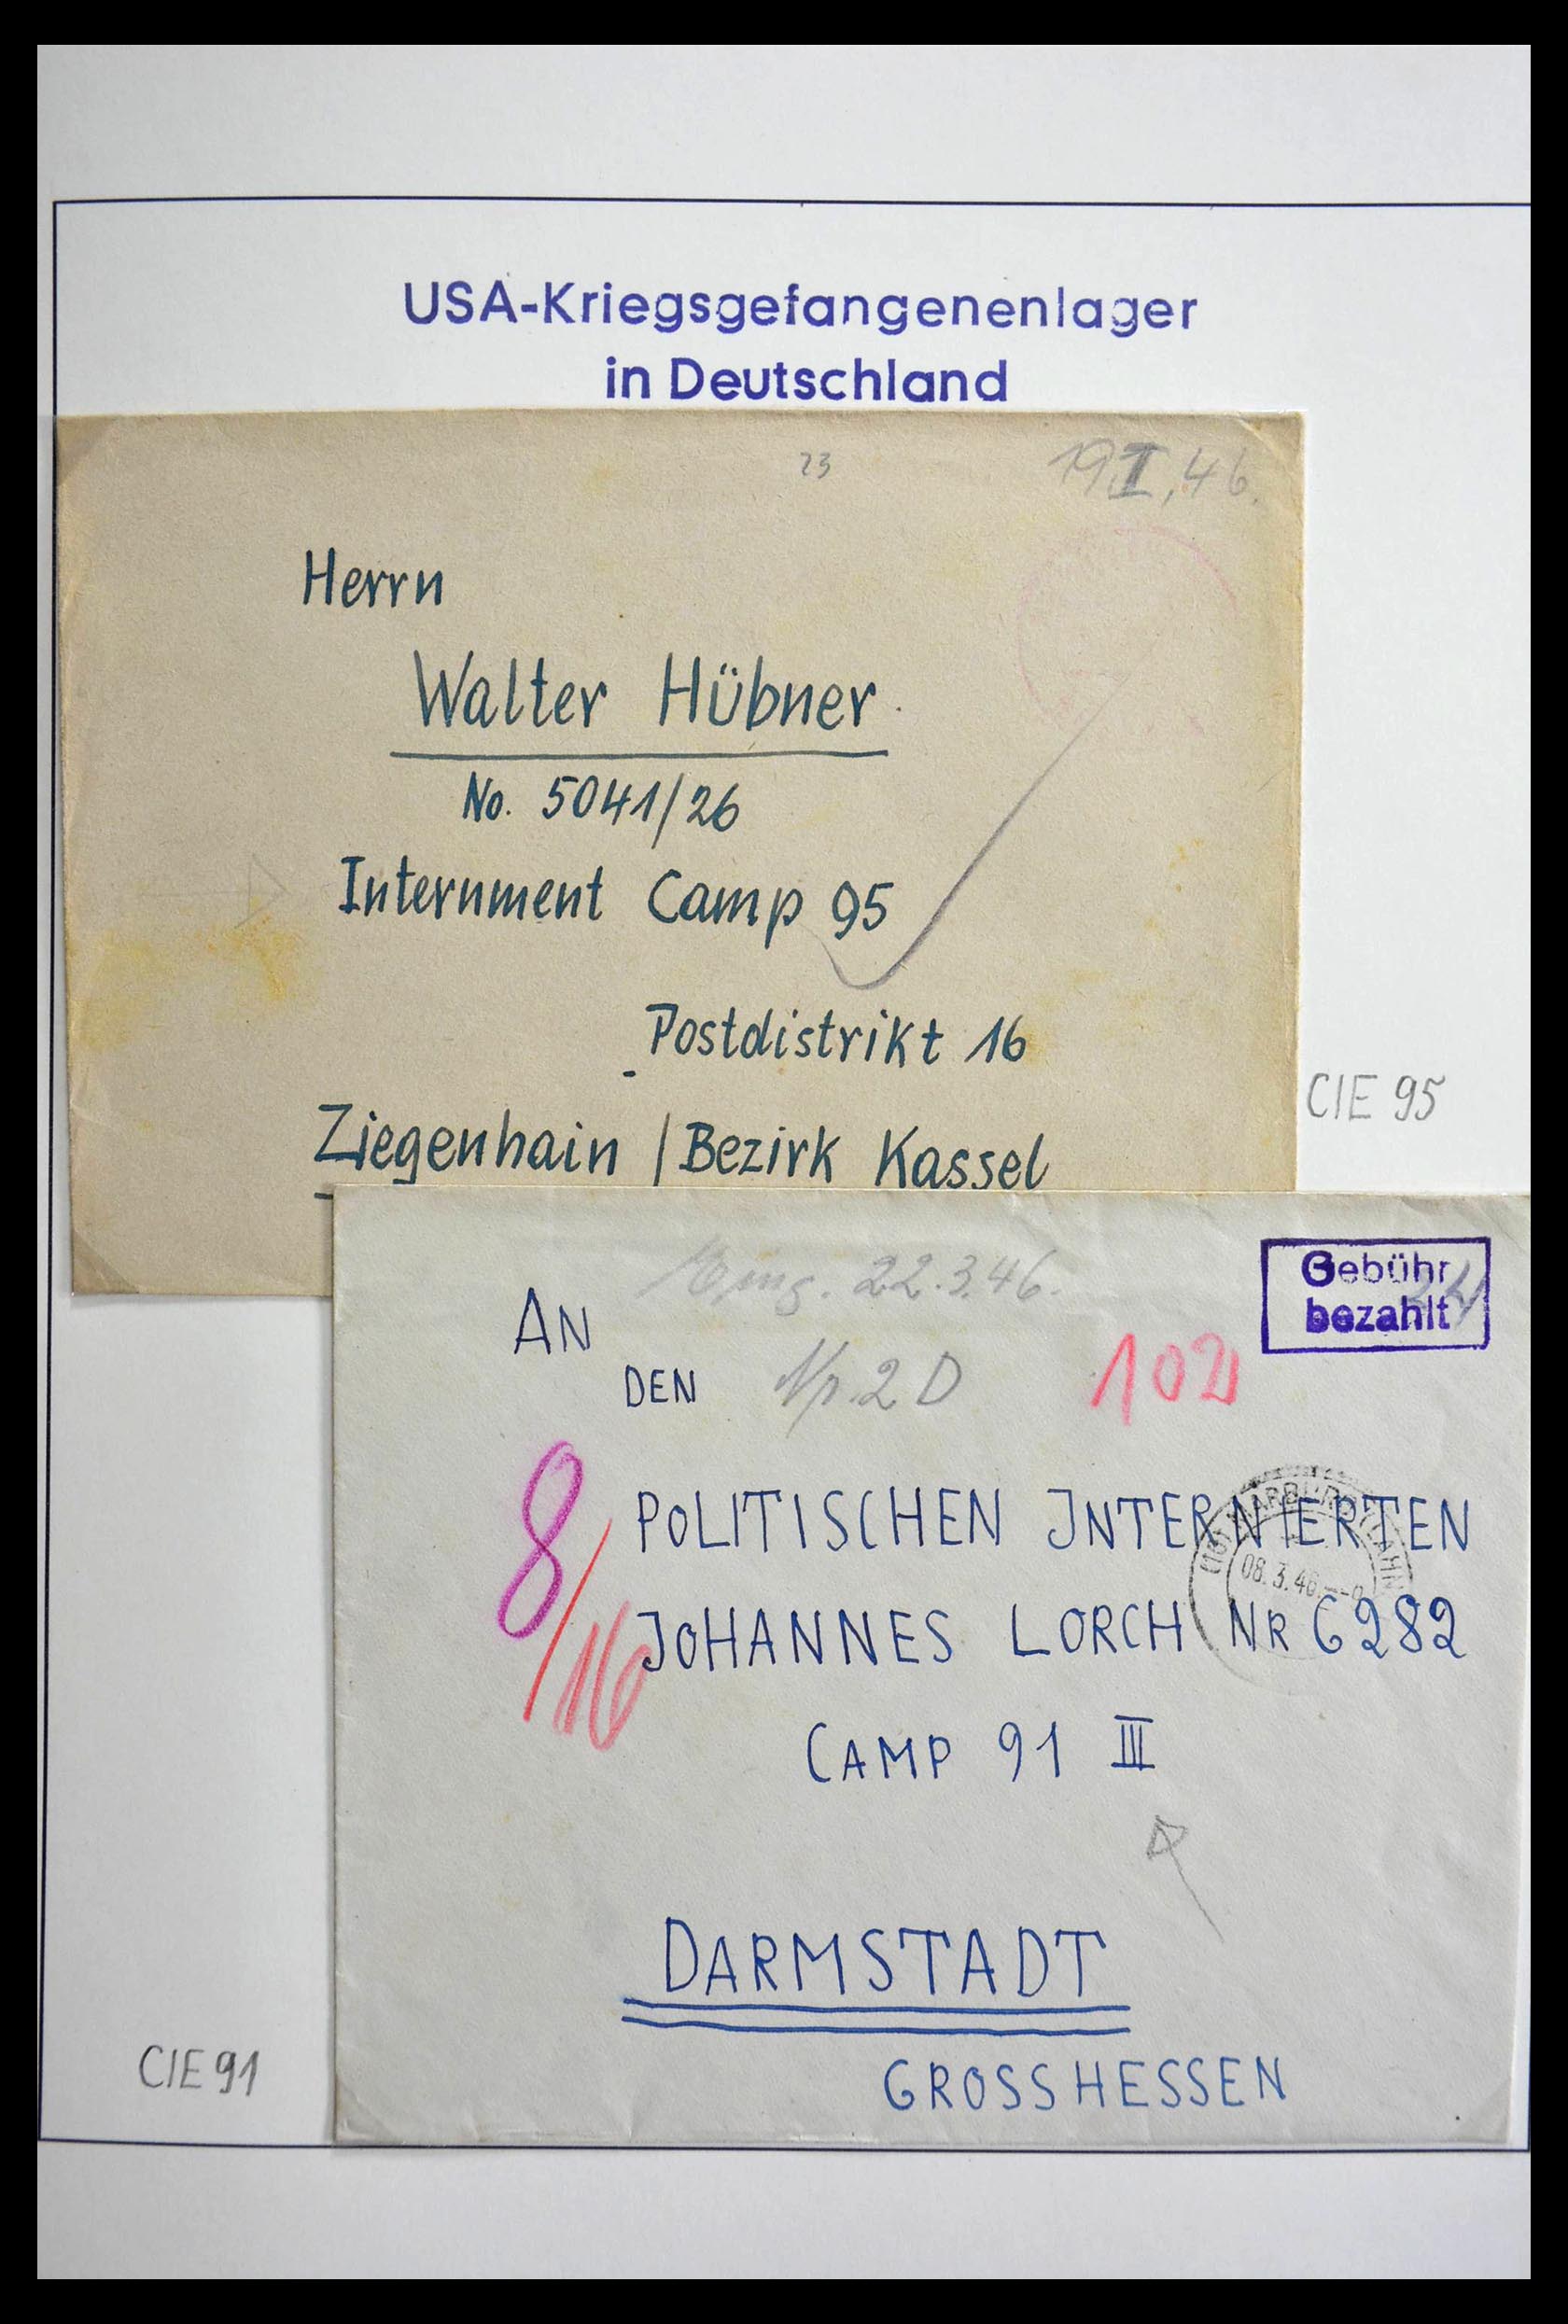 USA-Kriegsgefangenenlager
in Deutschland
23
19.I.46.
Herrn
Walter Hübner
No. 5041/26
Internment Camp 95
Postdistrikt 16
Ziegenhain / Bezirk Kassel
CIE 95
Eing. 22.3.46.
Gebühr
bezahlt
24
AN
DEN
2 D
102
8/16
POLITISCHEN INTERNIERTEN
MARBURG
08.3.46
JOHANNES LORCH NR 6282
CAMP 91 III
DARMSTADT
GROSSHESSEN
CIE 91